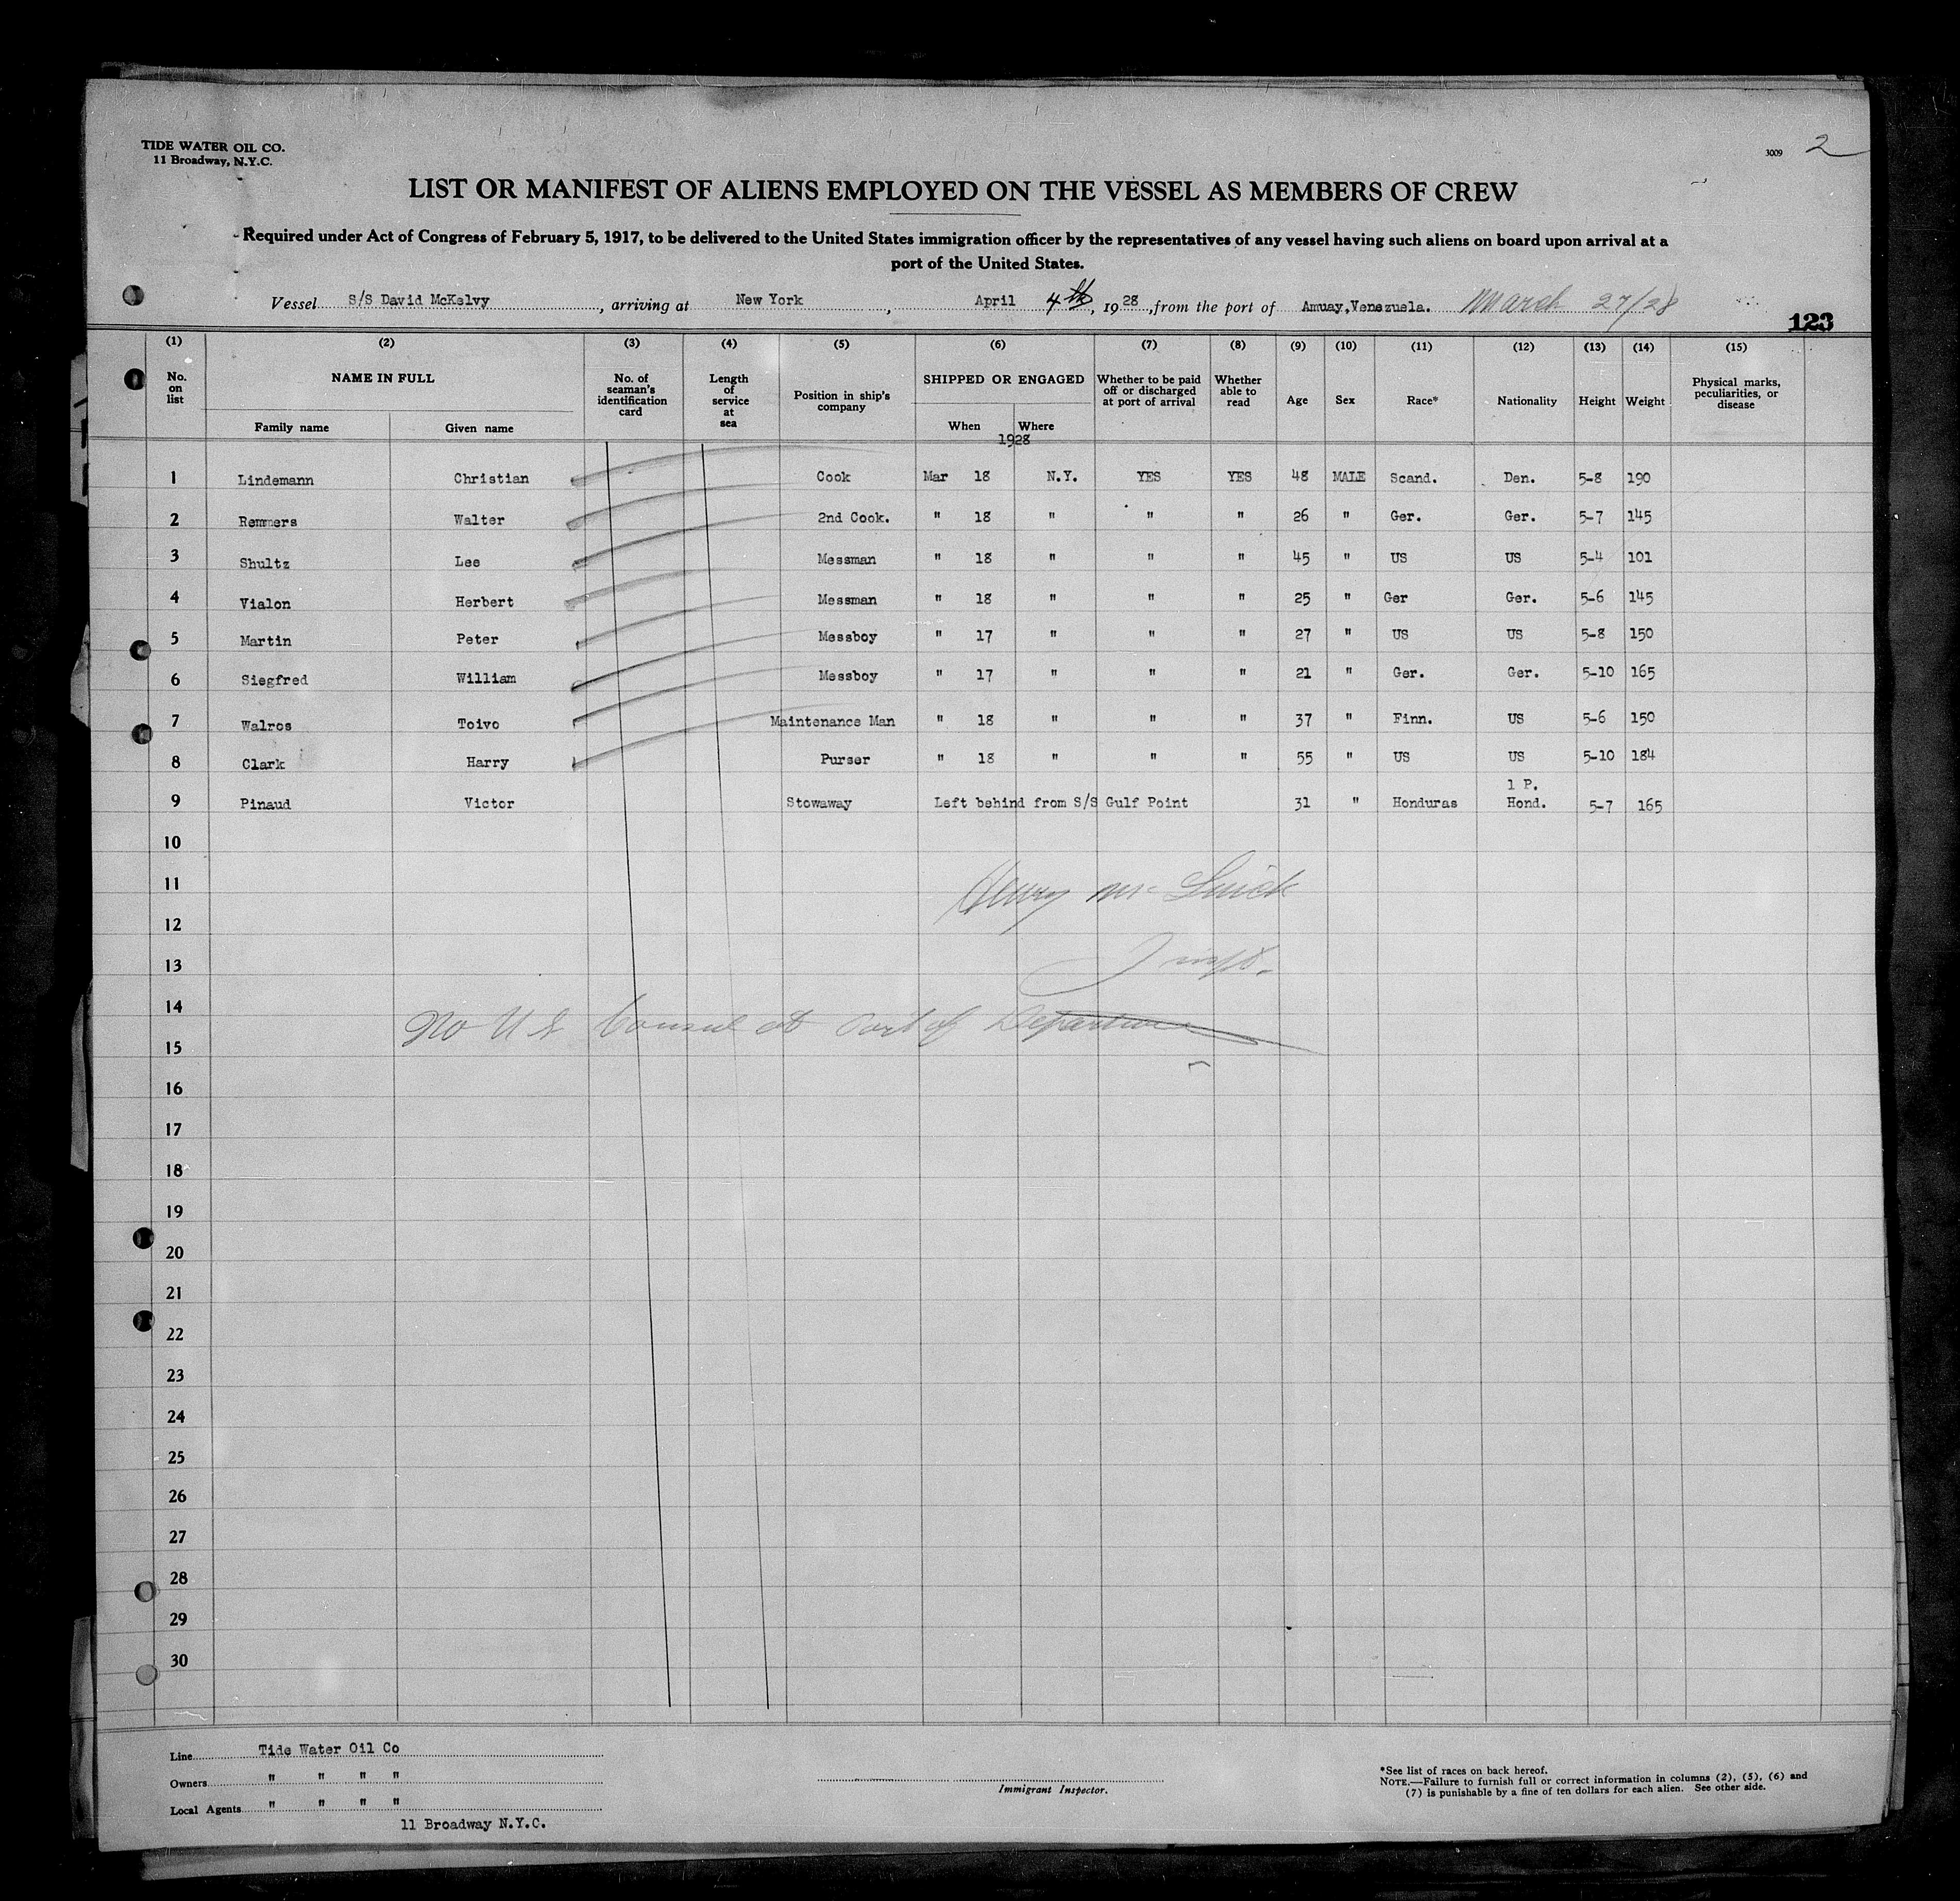 TIDE WATER OIL CO.
11 Broadway, N.Y.C.
3009 2
LIST OR MANIFEST OF ALIENS EMPLOYED ON THE VESSEL AS MEMBERS OF CREW
Required under Act of Congress of February 5, 1917, to be delivered to the United States immigration officer by the representatives of any vessel having such aliens on board upon arrival at a
port of the United States.
Vessel S/S David McKelvy, arriving at New York, April 4th, 1928, from the port of Amuay, Venezuela. March 27/28
123
(1) (2) (3) (4) (5) (6) (7) (8) (9) (10) (11) (12) (13) (14) (15)
No. on list NAME IN FULL Family name Given name No. of seaman's identification card Length of service at sea Position in ship's company SHIPPED OR ENGAGED When Where Whether to be paid off or discharged at port of arrival Whether able to read Age Sex Race* Nationality Height Weight Physical marks, peculiarities, or disease
1928
1 Lindemann Christian Cook Mar 18 N.Y. YES YES 48 MALE Scand. Den. 5-8 190
2 Remmers Walter 2nd Cook. " 18 " " " 26 " Ger. Ger. 5-7 145
3 Shultz Lee Messman " 18 " " " 45 " US US 5-4 101
4 Vialon Herbert Messman " 18 " " " 25 " Ger Ger. 5-6 145
5 Martin Peter Messboy " 17 " " " 27 " US US 5-8 150
6 Siegfred William Messboy " 17 " " " 21 " Ger. Ger. 5-10 165
7 Walros Toivo Maintenance Man " 18 " " " 37 " Finn. US 5-6 150
8 Clark Harry Purser " 18 " " " 55 " US US 5-10 184
1 P.
9 Pinaud Victor Stowaway Left behind from S/S Gulf Point 31 " Honduras Hond. 5-7 165
10
11 Henry Mc
12
13
14 No US Consul at Port of Departure
15
16
17
18
19
20
21
22
23
24
25
26
27
28
29
30
Line Tide Water Oil Co
Owners " " " "
Local Agents " " " "
11 Broadway N.Y.C.
Immigrant Inspector.
*See list of races on back hereof.
NOTE.—Failure to furnish full or correct information in columns (2), (5), (6) and
(7) is punishable by a fine of ten dollars for each alien. See other side.